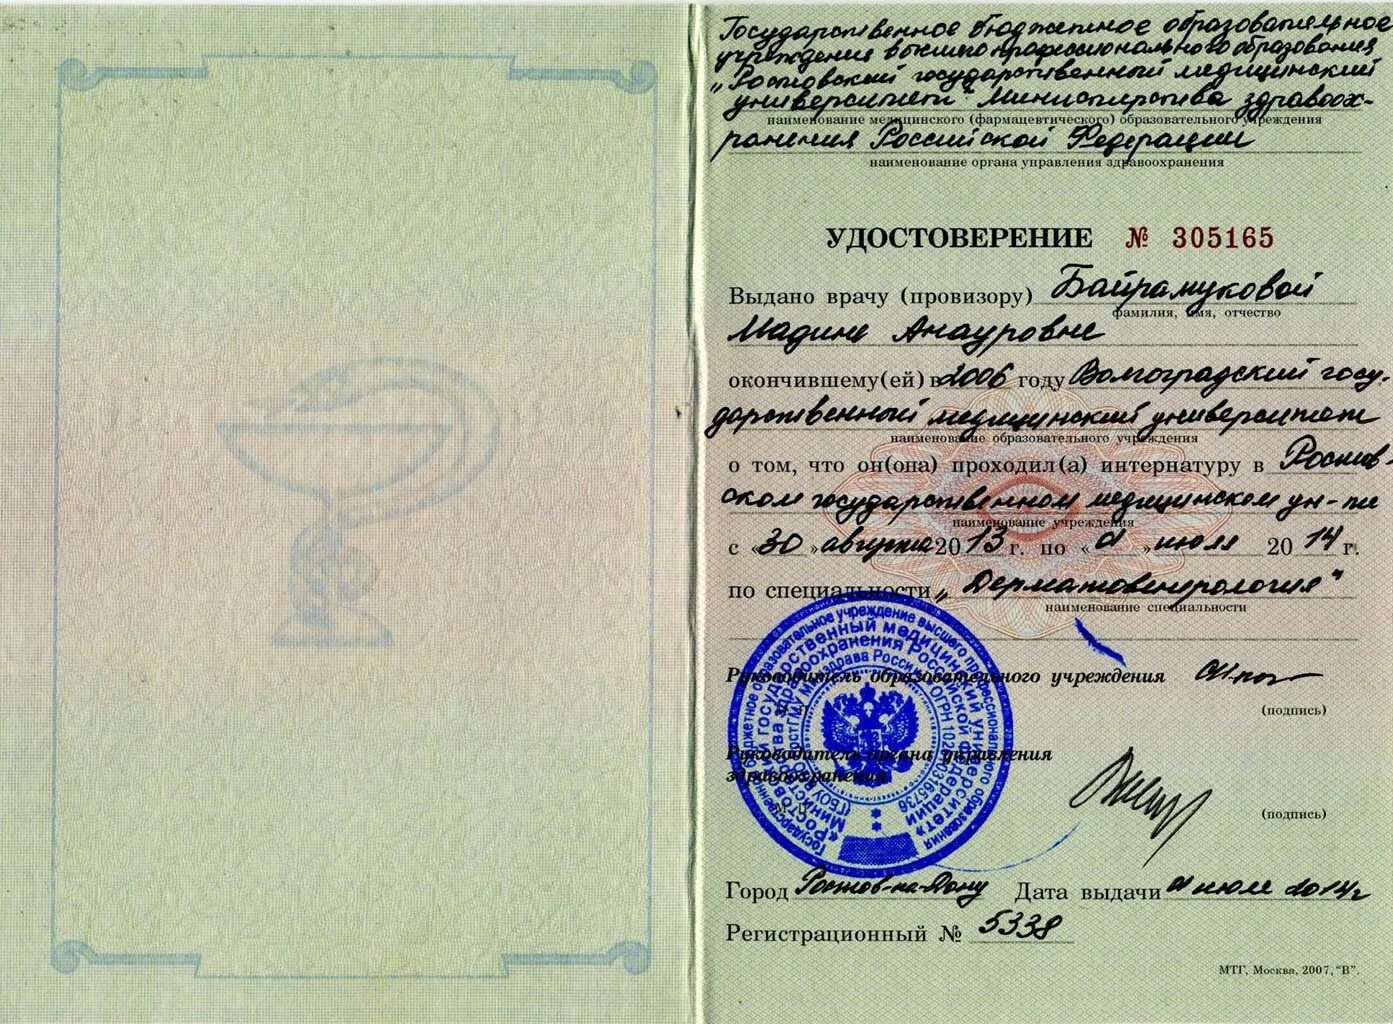 Государственное бюджетное образовательное
учреждение высшего профессионального образования
„Ростовский государственный медицинский
университет" Министерства здравоох-
наименование медицинского (фармацевтического) образовательного учреждения
ранения Российской Федерации
наименование органа управления здравоохранения
УДОСТОВЕРЕНИЕ № 305165
Выдано врачу (провизору) Байрамуковой
фамилия, имя, отчество
Мадине Анауровне
окончившему(ей) в 2006 году Волгоградский госу-
дарственный медицинский университет
наименование образовательного учреждения
о том, что он(она) проходил(а) интернатуру в Ростов-
ском государственном медицинском ун-те
наименование учреждения
с «30» августа 2013 г. по «01» июля 2014 г.
по специальности „Дерматовенерология"
наименование специальности
Руководитель образовательного учреждения
(подпись)
Руководитель органа управления
здравоохранения
М. П.
(подпись)
Город Ростов-на-Дону Дата выдачи 01 июля 2014г
Регистрационный № 5338
МТГ, Москва, 2007, "В".
Государственное бюджетное образовательное учреждение высшего профессионального образования
«Ростовский государственный медицинский университет»
Министерства здравоохранения Российской Федерации
(ГБОУ ВПО РостГМУ Минздрава России)